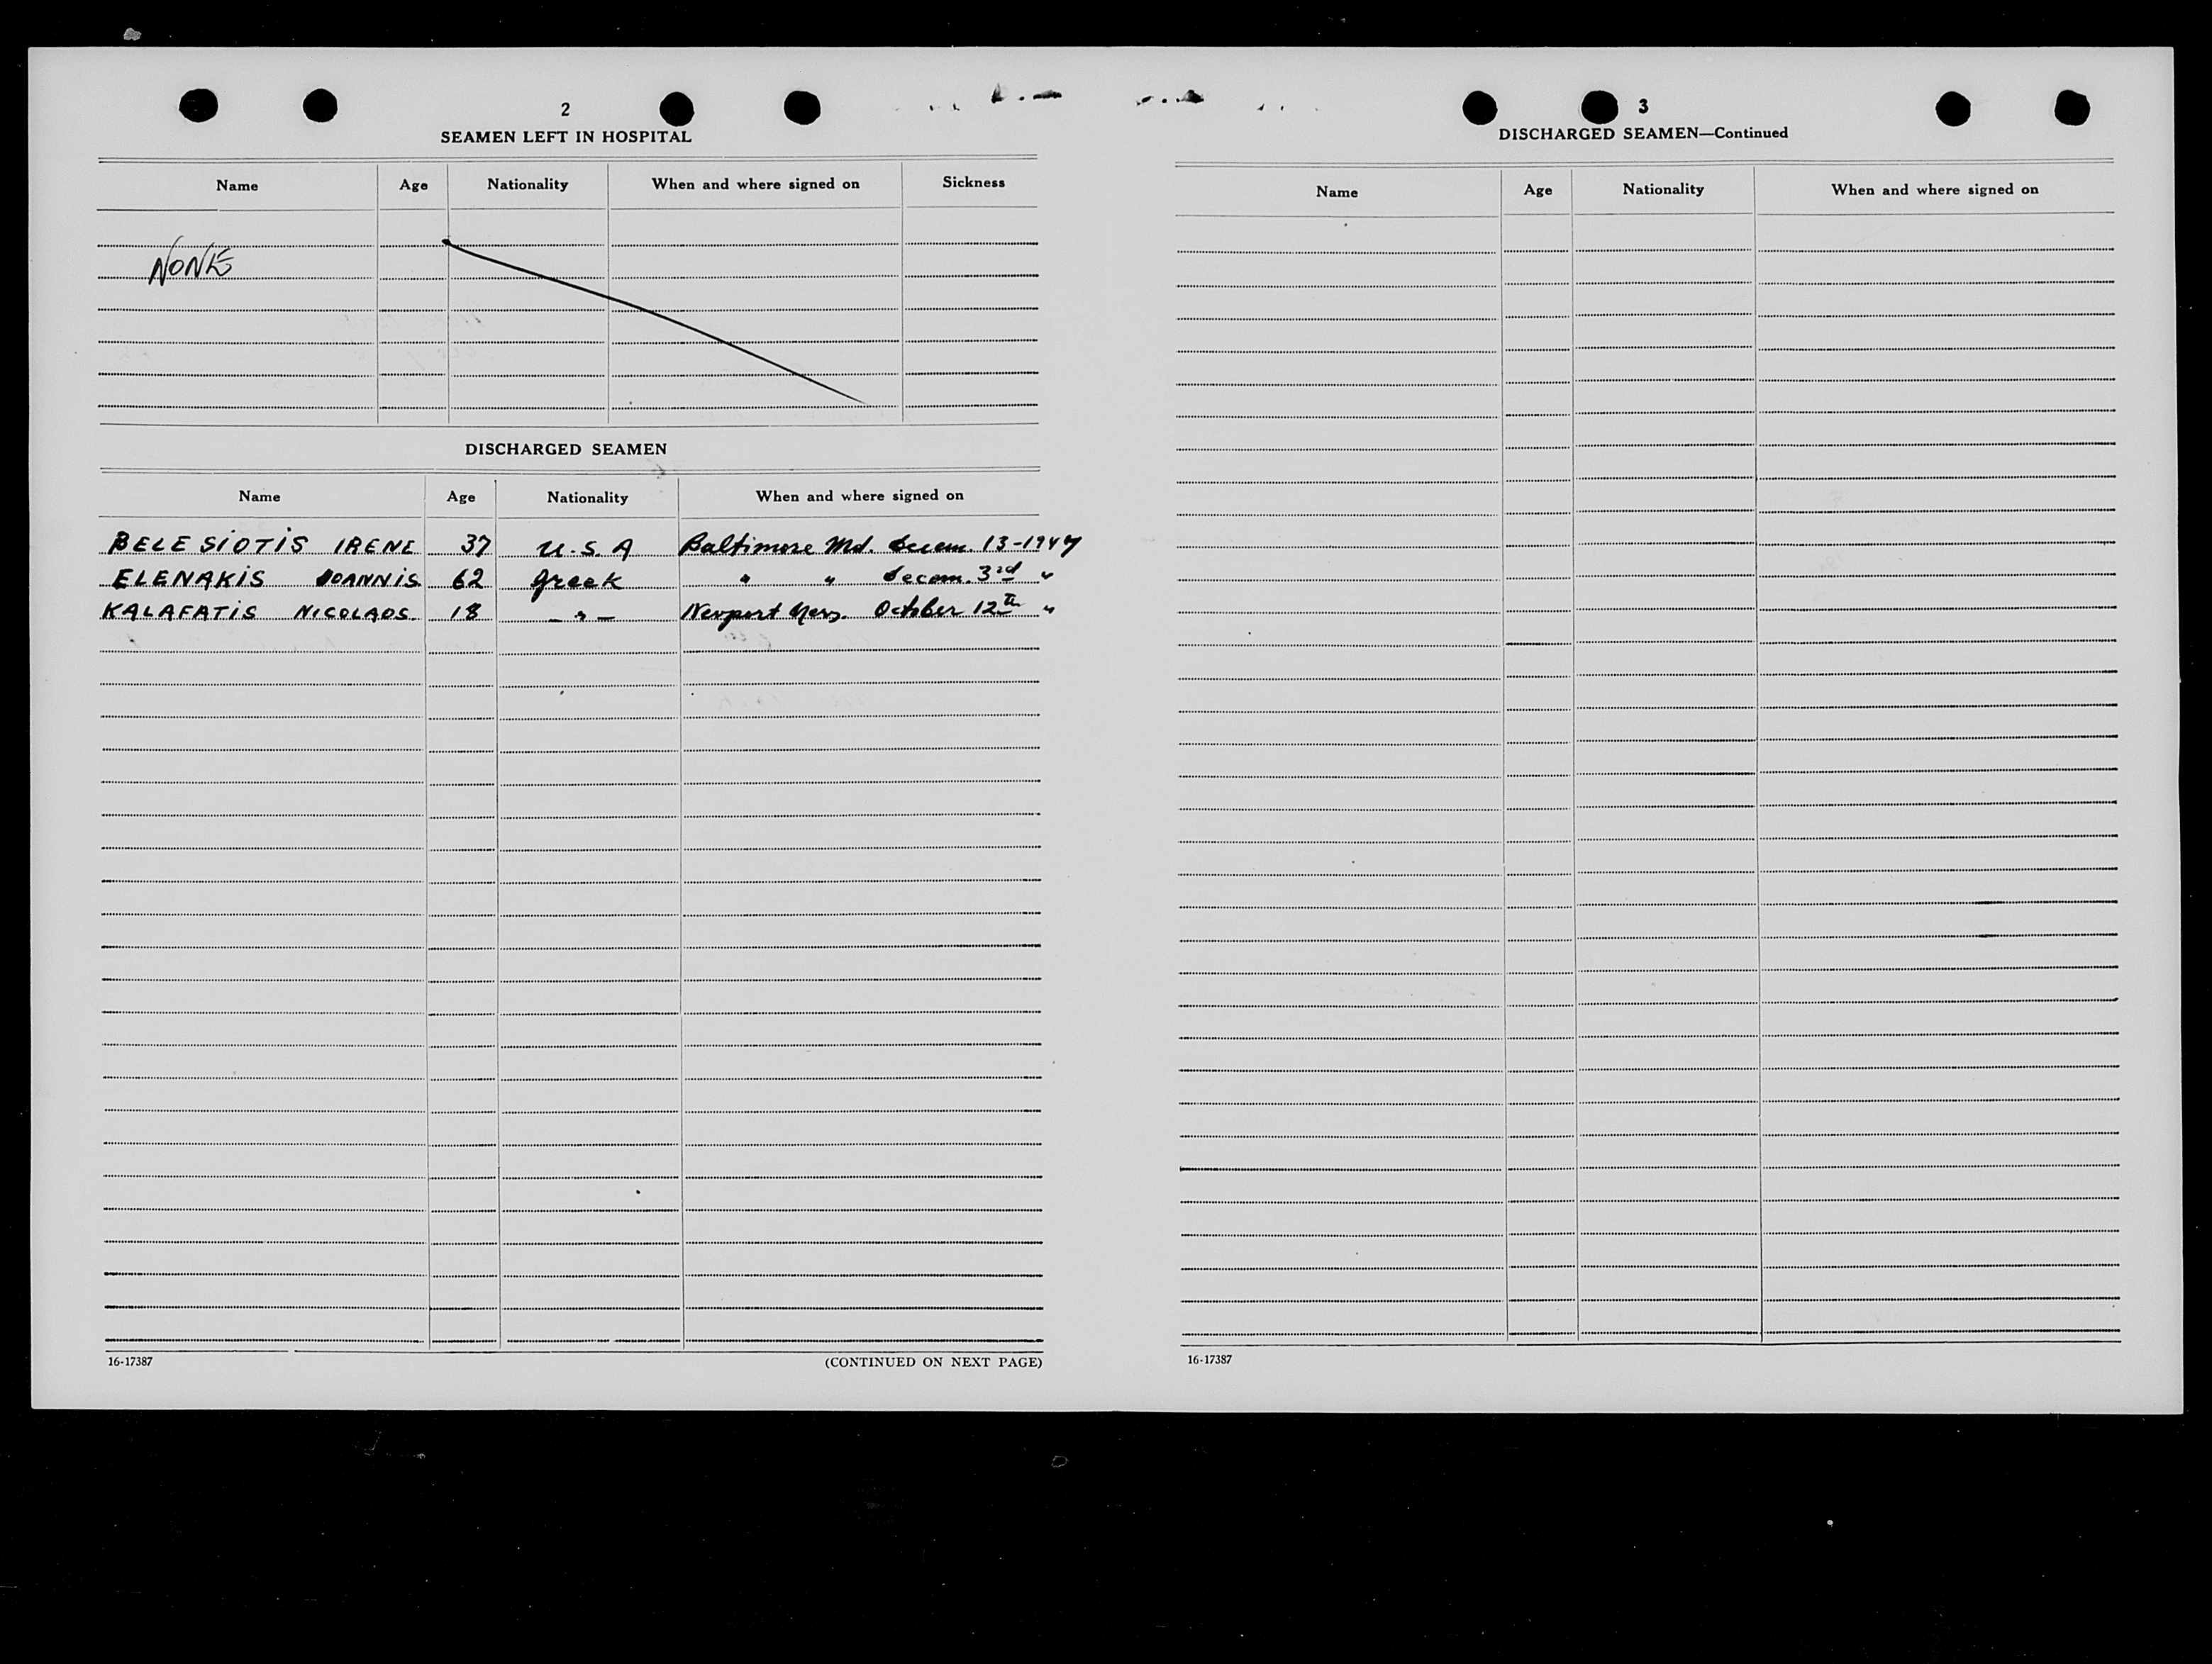 2
SEAMEN LEFT IN HOSPITAL
Name Age Nationality When and where signed on Sickness
NONE
DISCHARGED SEAMEN
Name Age Nationality When and where signed on
BELESIOTIS IRENE 37 U.S.A Baltimore Md. decem. 13-1947
ELENAKIS IOANNIS 62 greek " " decem. 3rd "
KALAFATIS NICOLAOS. 18 -"- Newport News. October 12th "
16-17387
(CONTINUED ON NEXT PAGE)
3
DISCHARGED SEAMEN—Continued
Name Age Nationality When and where signed on
16-17387